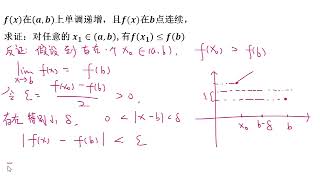 f(x)在(a, b)上单调递增，且f(x)在b点连续，
求证：对任意的 x₁ ∈ (a, b), 有f(x₁) ≤ f(b)
反证 假设 存在一个 x₀ ∈ (a, b), f(x₀) > f(b)
lim f(x) = f(b)
x→b
令 ε = (f(x₀) - f(b))/2 > 0.
存在 δ, 0 < |x-b| < δ
|f(x) - f(b)| < ε
x₀ b-δ b